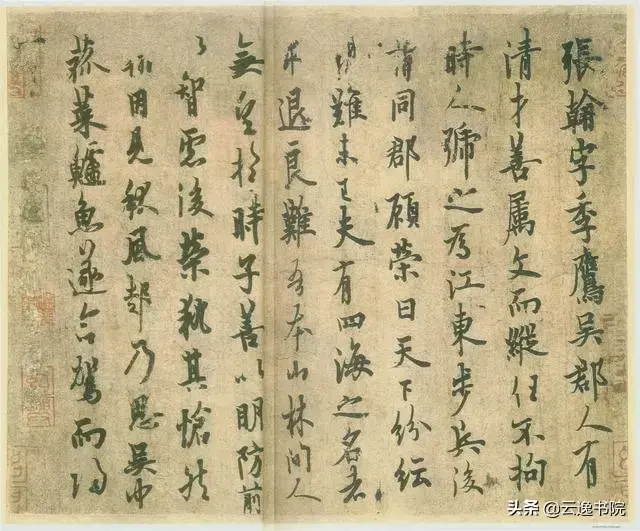 張翰字季鷹吳郡人有
清才善屬文而縱任不拘
時人號之為江東步兵後
謂同郡顧榮曰天下紛紜
禍難未已夫有四海之名者
求退良難吾本山林間人
無望於時子善以明防前
以智慮後榮執其愴然
翰因見秋風起乃思吳中
菰菜鱸魚遂命駕而歸
头条 @云逸书院